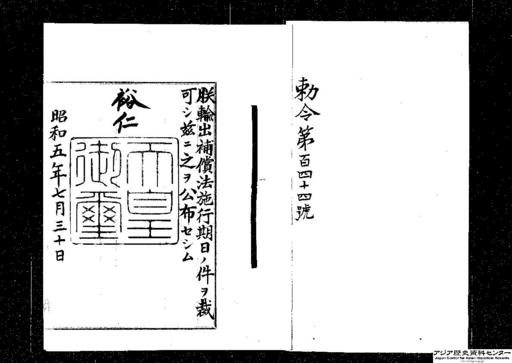 勅令第百四十四號
朕輸出補償法施行期日ノ件ヲ裁
可シ茲ニ之ヲ公布セシム
裕仁
天皇
御璽
昭和五年七月三十日
アジア歴史資料センター
Japan Center for Asian Historical Records